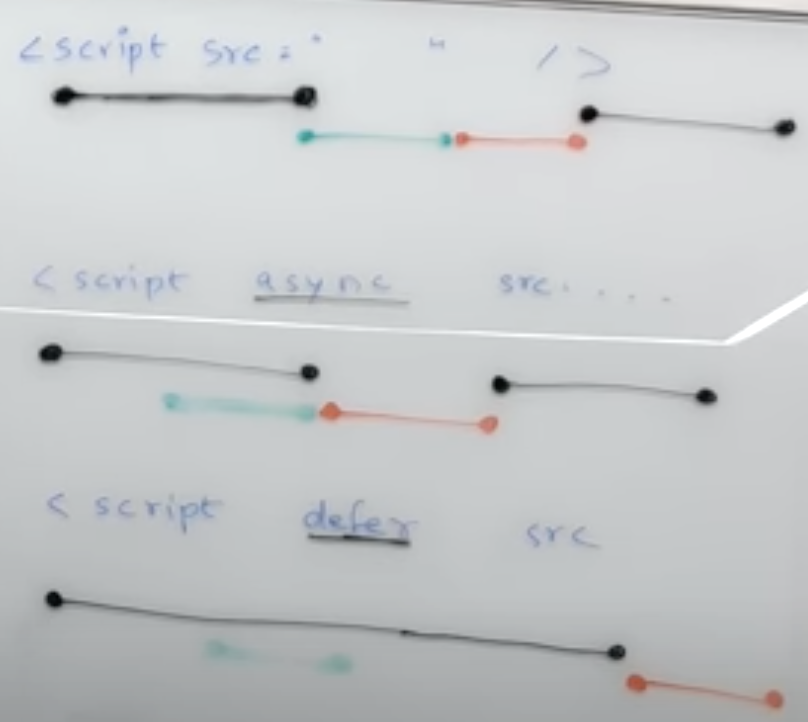 <script src=" " />
<script async src. . . .
<script defer src